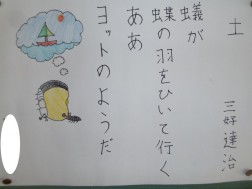 土
三好達治
蟻が
蝶の羽をひいて行く
ああ
ヨットのようだ